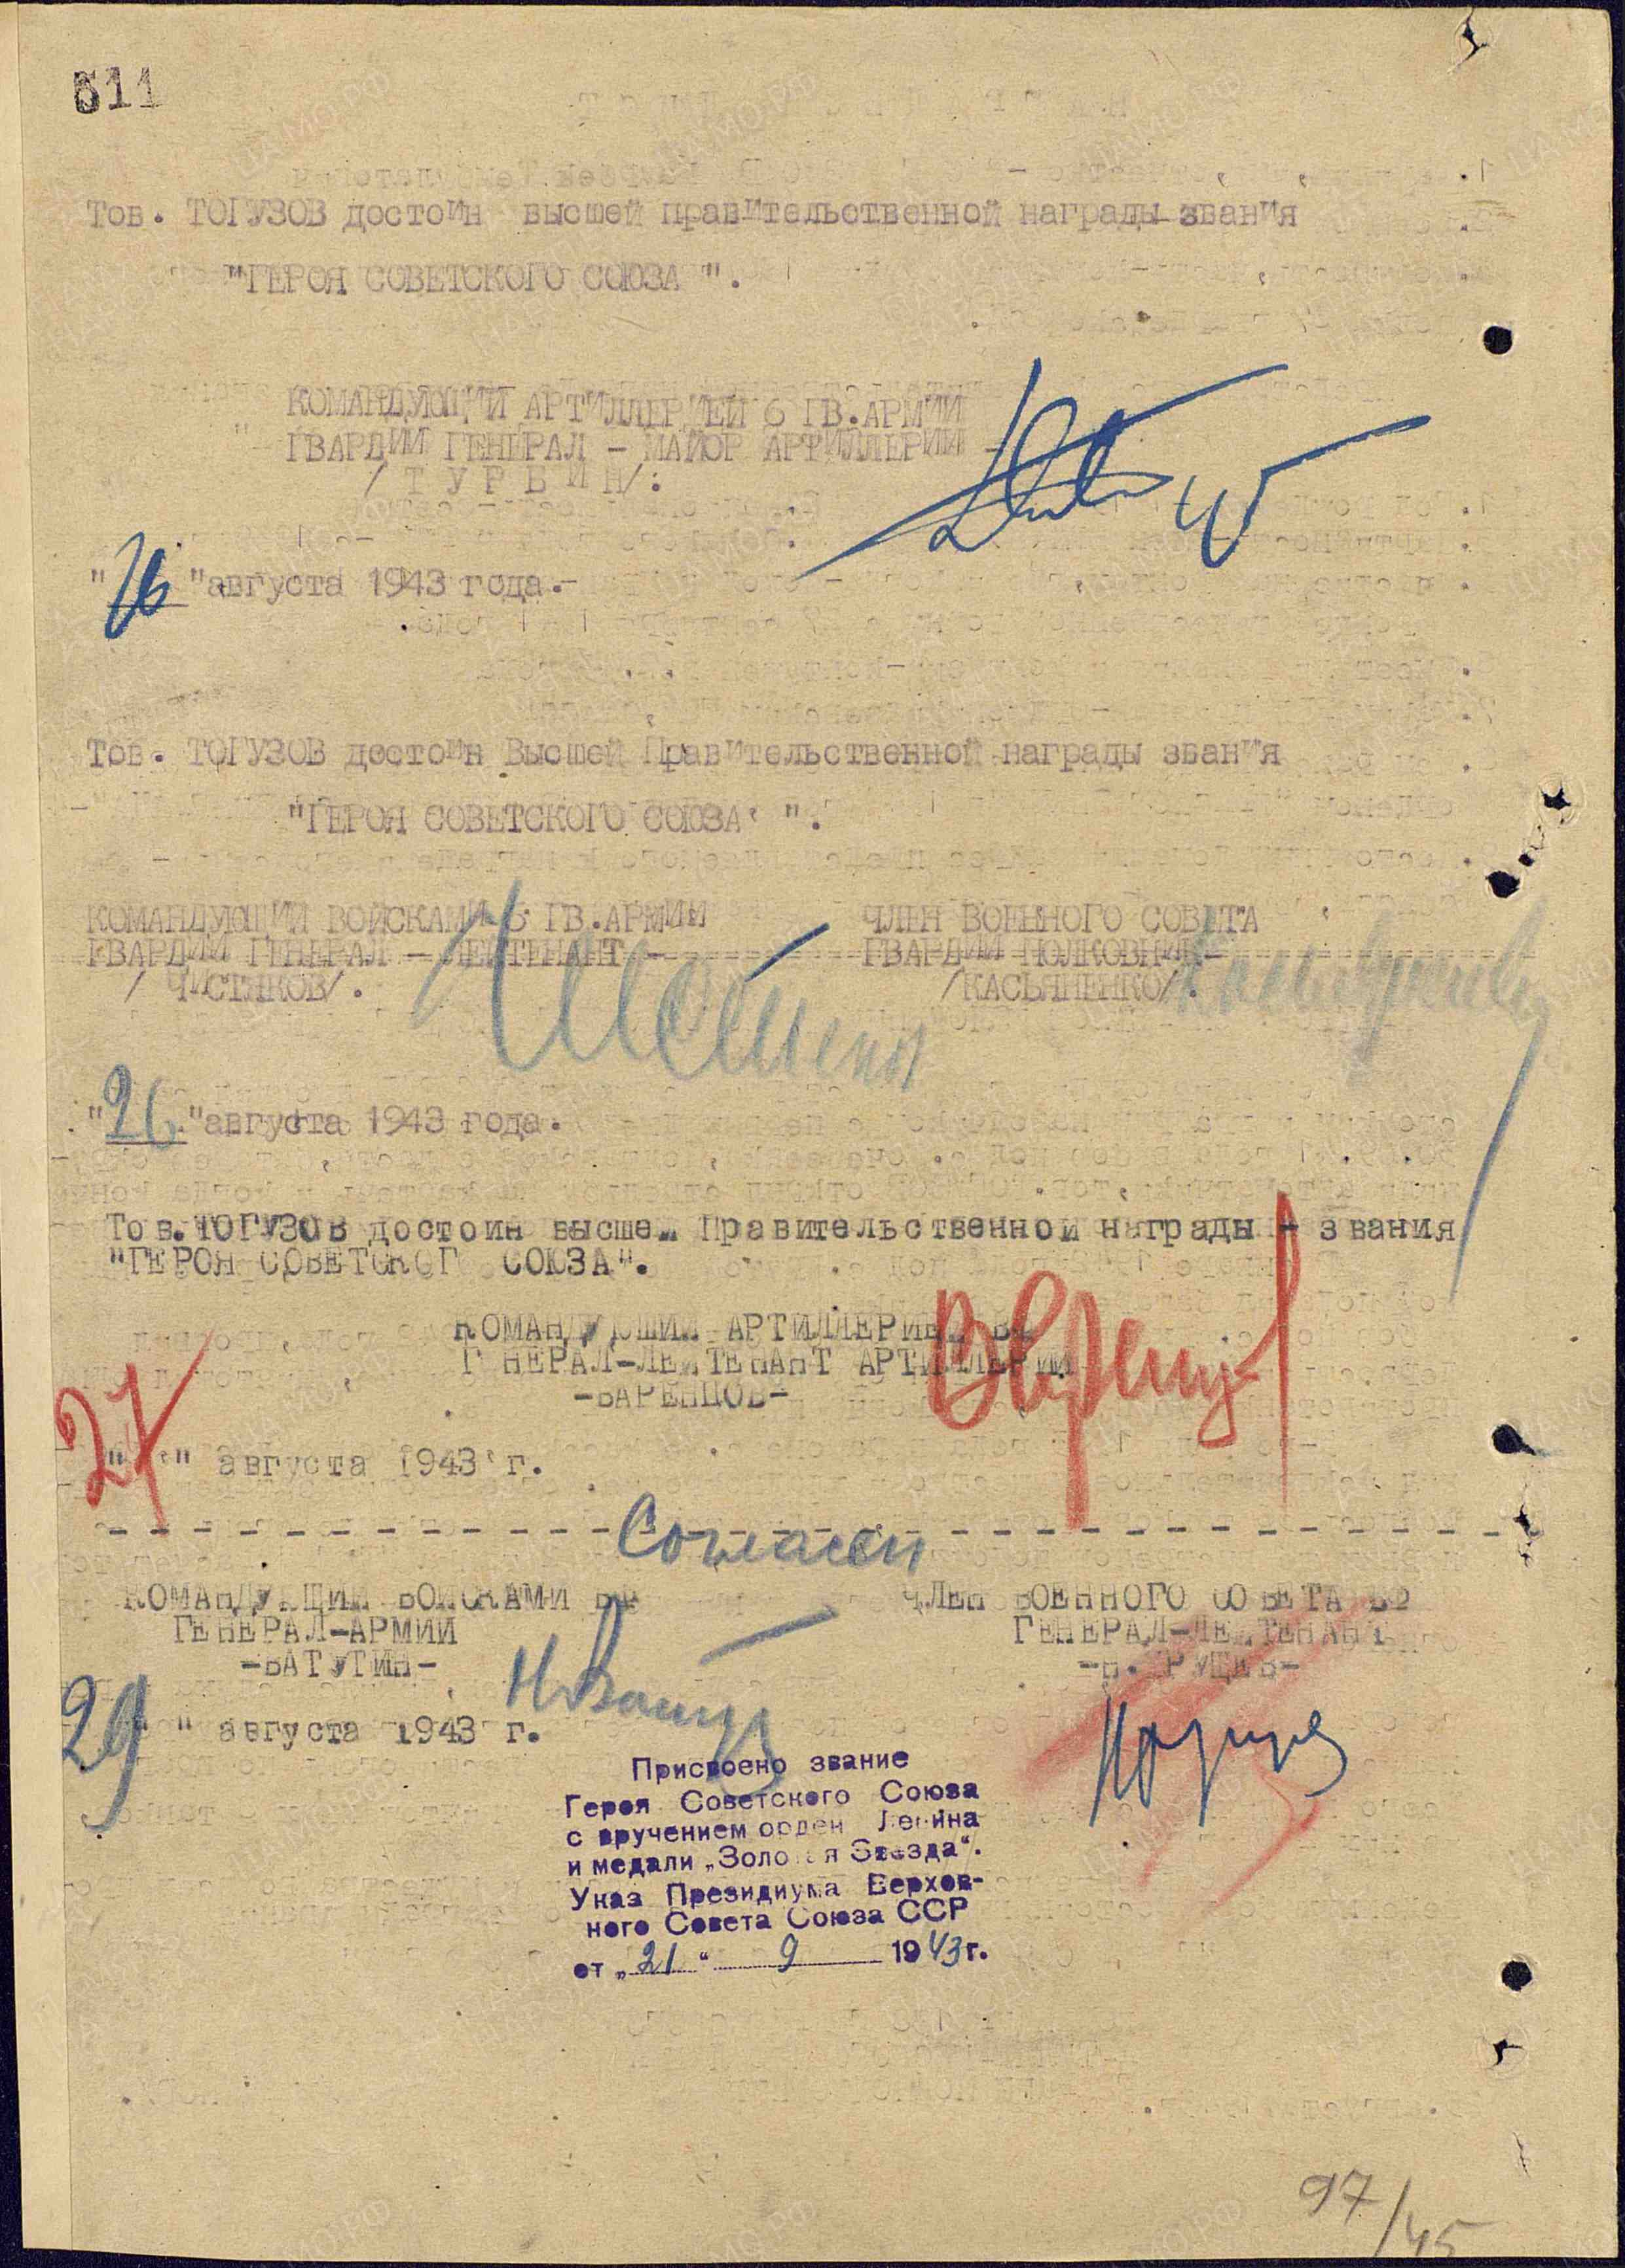 511
Тов. ТОГУЗОВ достоин высшей правительственной награды звания
"ГЕРОЯ СОВЕТСКОГО СОЮЗА ".
КОМАНДУЮЩИЙ АРТИЛЛЕРИЕЙ 6 ГВ.АРМИИ
ГВАРДИИ ГЕНЕРАЛ - МАЙОР АРТИЛЛЕРИИ -
/ Т У Р Б И Н/.
"26 "августа 1943 года.-
Тов. ТОГУЗОВ достоин Высшей Правительственной награды звания
"ГЕРОЯ СОВЕТСКОГО СОЮЗА ".
КОМАНДУЮЩИЙ ВОЙСКАМИ 6 ГВ.АРМИИ
ГВАРДИИ ГЕНЕРАЛ - ЛЕЙТЕНАНТ -
/ ЧИСТЯКОВ/.
ЧЛЕН ВОЕННОГО СОВЕТА
ГВАРДИИ ПОЛКОВНИК-
/КАСЬЯНЕНКО/.
"26 "августа 1943 года.
Тов.ТОГУЗОВ достоин высшей Правительственной награды - звания
"ГЕРОЯ СОВЕТСКОГО СОЮЗА".
КОМАНДУЮЩИЙ АРТИЛЛЕРИЕЙ ВФ
ГЕНЕРАЛ-ЛЕЙТЕНАНТ АРТИЛЛЕРИИ
-ВАРЕНЦОВ-
27 " " августа 1943 г.
Согласен
КОМАНДУЮЩИЙ ВОЙСКАМИ ВФ
ГЕНЕРАЛ-АРМИИ
-ВАТУТИН-
ЧЛЕН ВОЕННОГО СОВЕТА ВФ
ГЕНЕРАЛ-ЛЕЙТЕНАНТ
-Н. ХРУЩЕВ-
29 " августа 1943 г.
Присвоено звание
Героя Советского Союза
с вручением орден Ленина
и медали „Золотая Звезда".
Указ Президиума Верхов-
ного Совета Союза ССР
от „21" 9 1943г.
97/45